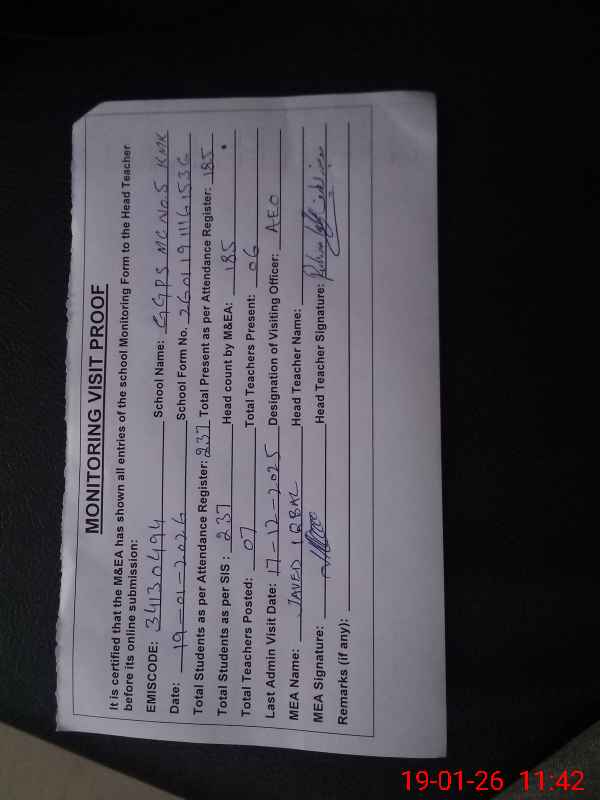 MONITORING VISIT PROOF
It is certified that the M&EA has shown all entries of the school Monitoring Form to the Head Teacher
before its online submission:
EMISCODE: 34130494 School Name: GGPS MC No.5 KMK
Date: 19-01-2026 School Form No. 26011911161536
Total Students as per Attendance Register: 237 Total Present as per Attendance Register: 185
Total Students as per SIS : 237 Head count by M&EA: 185
Total Teachers Posted: 07 Total Teachers Present: 06
Last Admin Visit Date: 17-12-2025 Designation of Visiting Officer: AEO
MEA Name: JAVED IQBAL Head Teacher Name:
MEA Signature: Head Teacher Signature:
Remarks (if any):
19-01-26 11:42